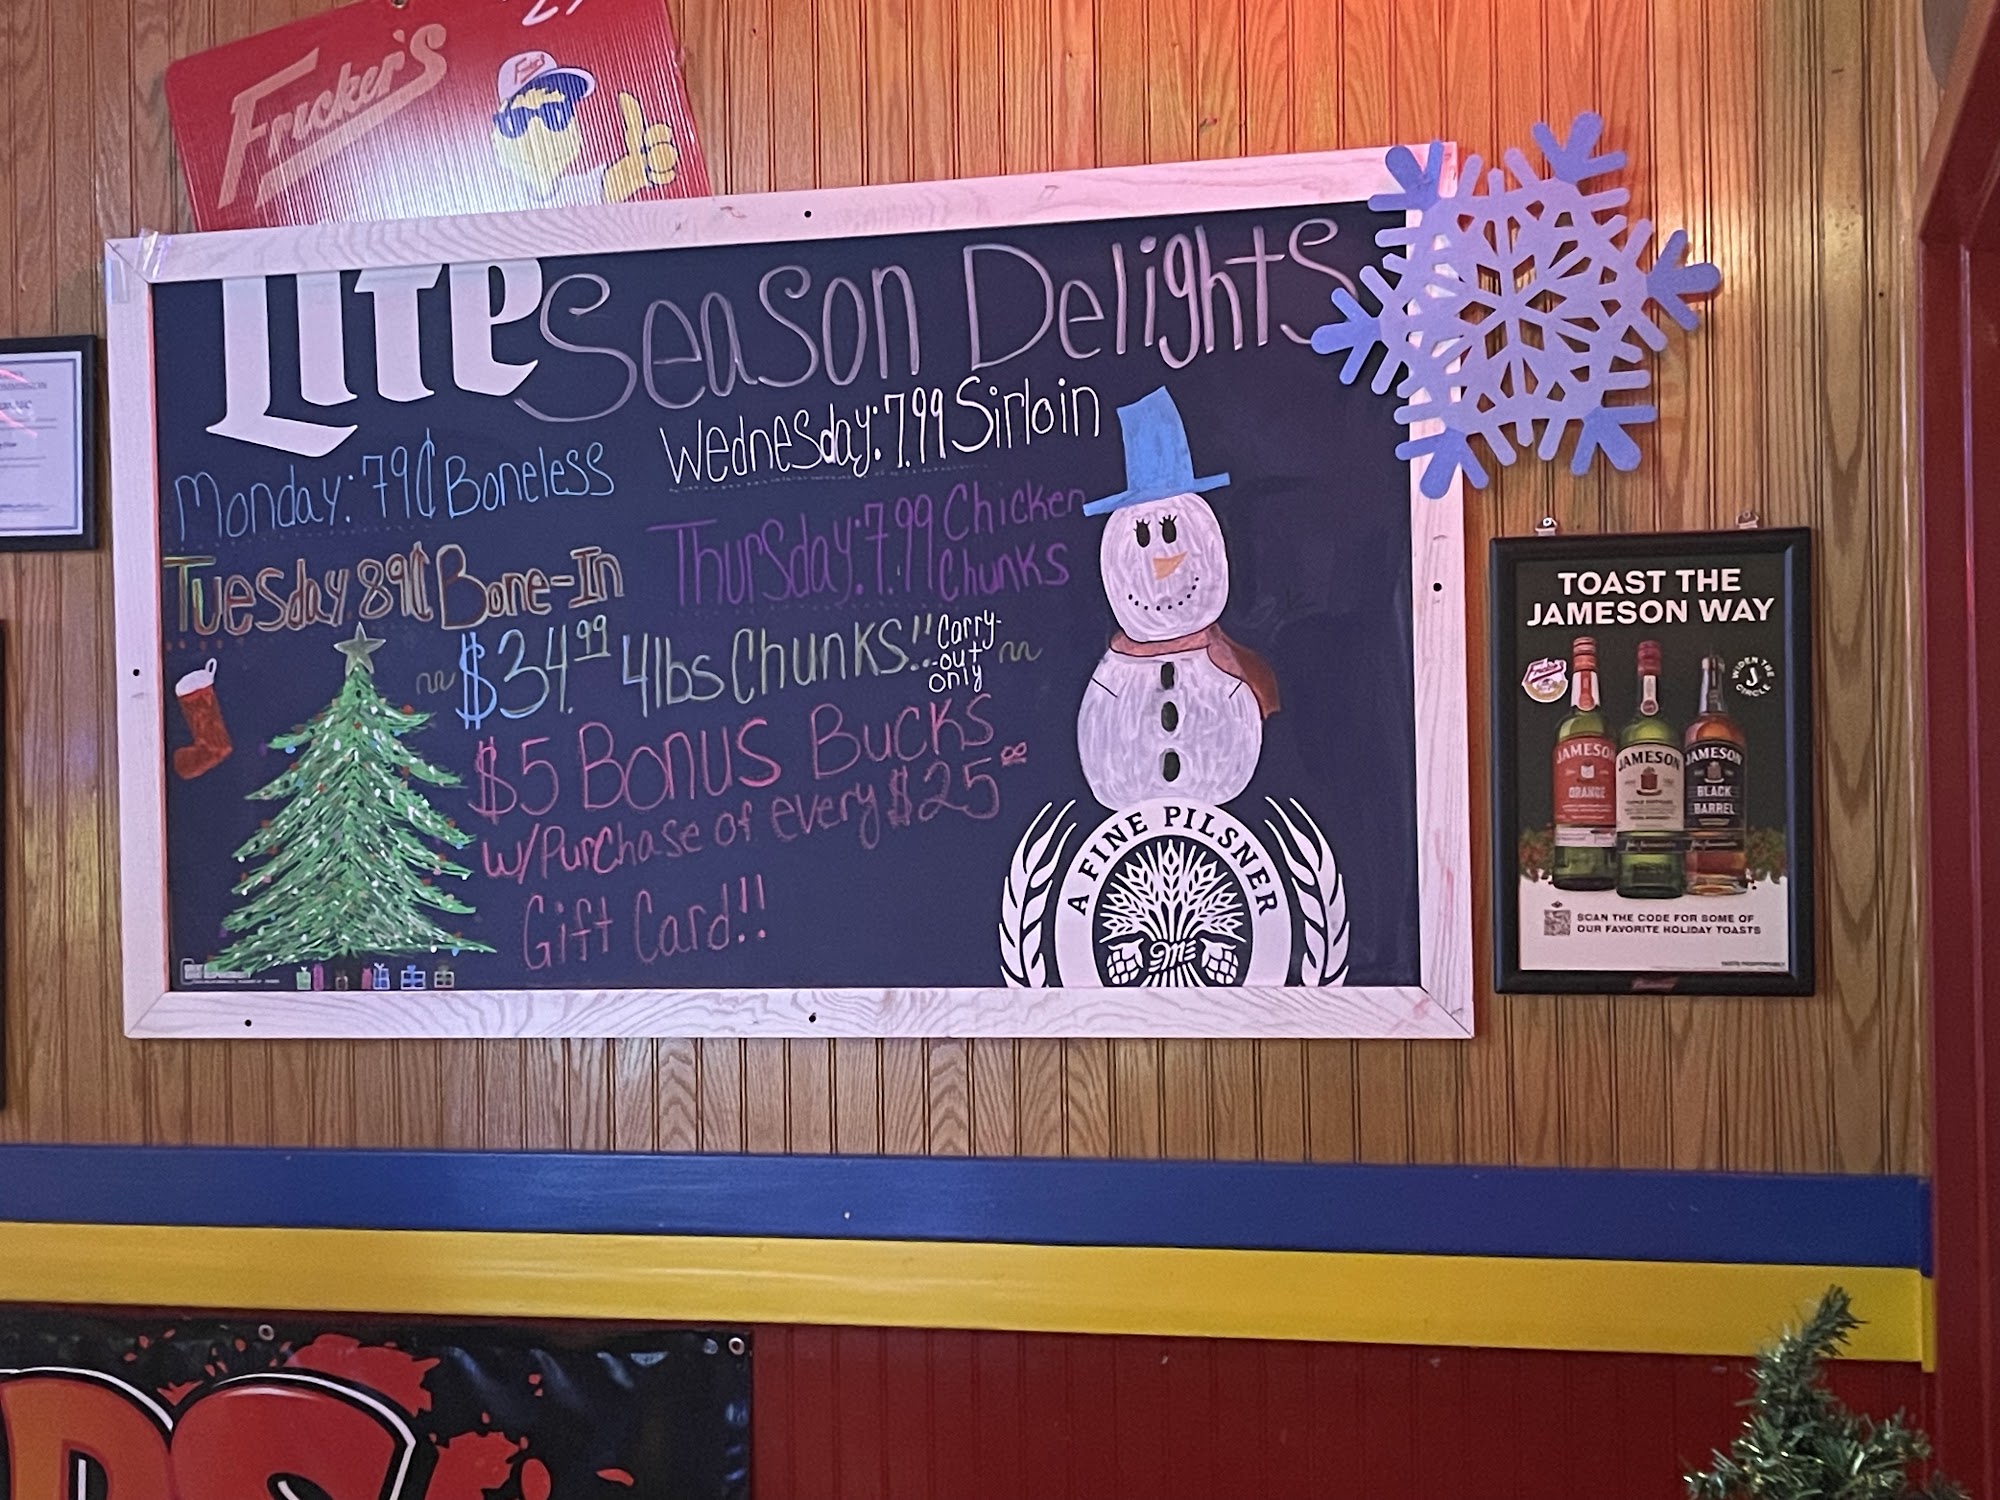 Fricker's
Fricker's
Lite Season Delights
Monday: 79¢ Boneless
Tuesday 89¢ Bone-In
Wednesday: 7.99 Sirloin
Thursday: 7.99 Chicken
Chunks
$34.99 4lbs Chunks!!
Carry-
out
only
$5 Bonus Bucks
w/Purchase of every $25.00
Gift Card!!
A FINE PILSNER
TOAST THE
JAMESON WAY
WIDEN THE
CIRCLE
J
JAMESON
ORANGE
JAMESON
JAMESON
BLACK
BARREL
SCAN THE CODE FOR SOME OF
OUR FAVORITE HOLIDAY TOASTS